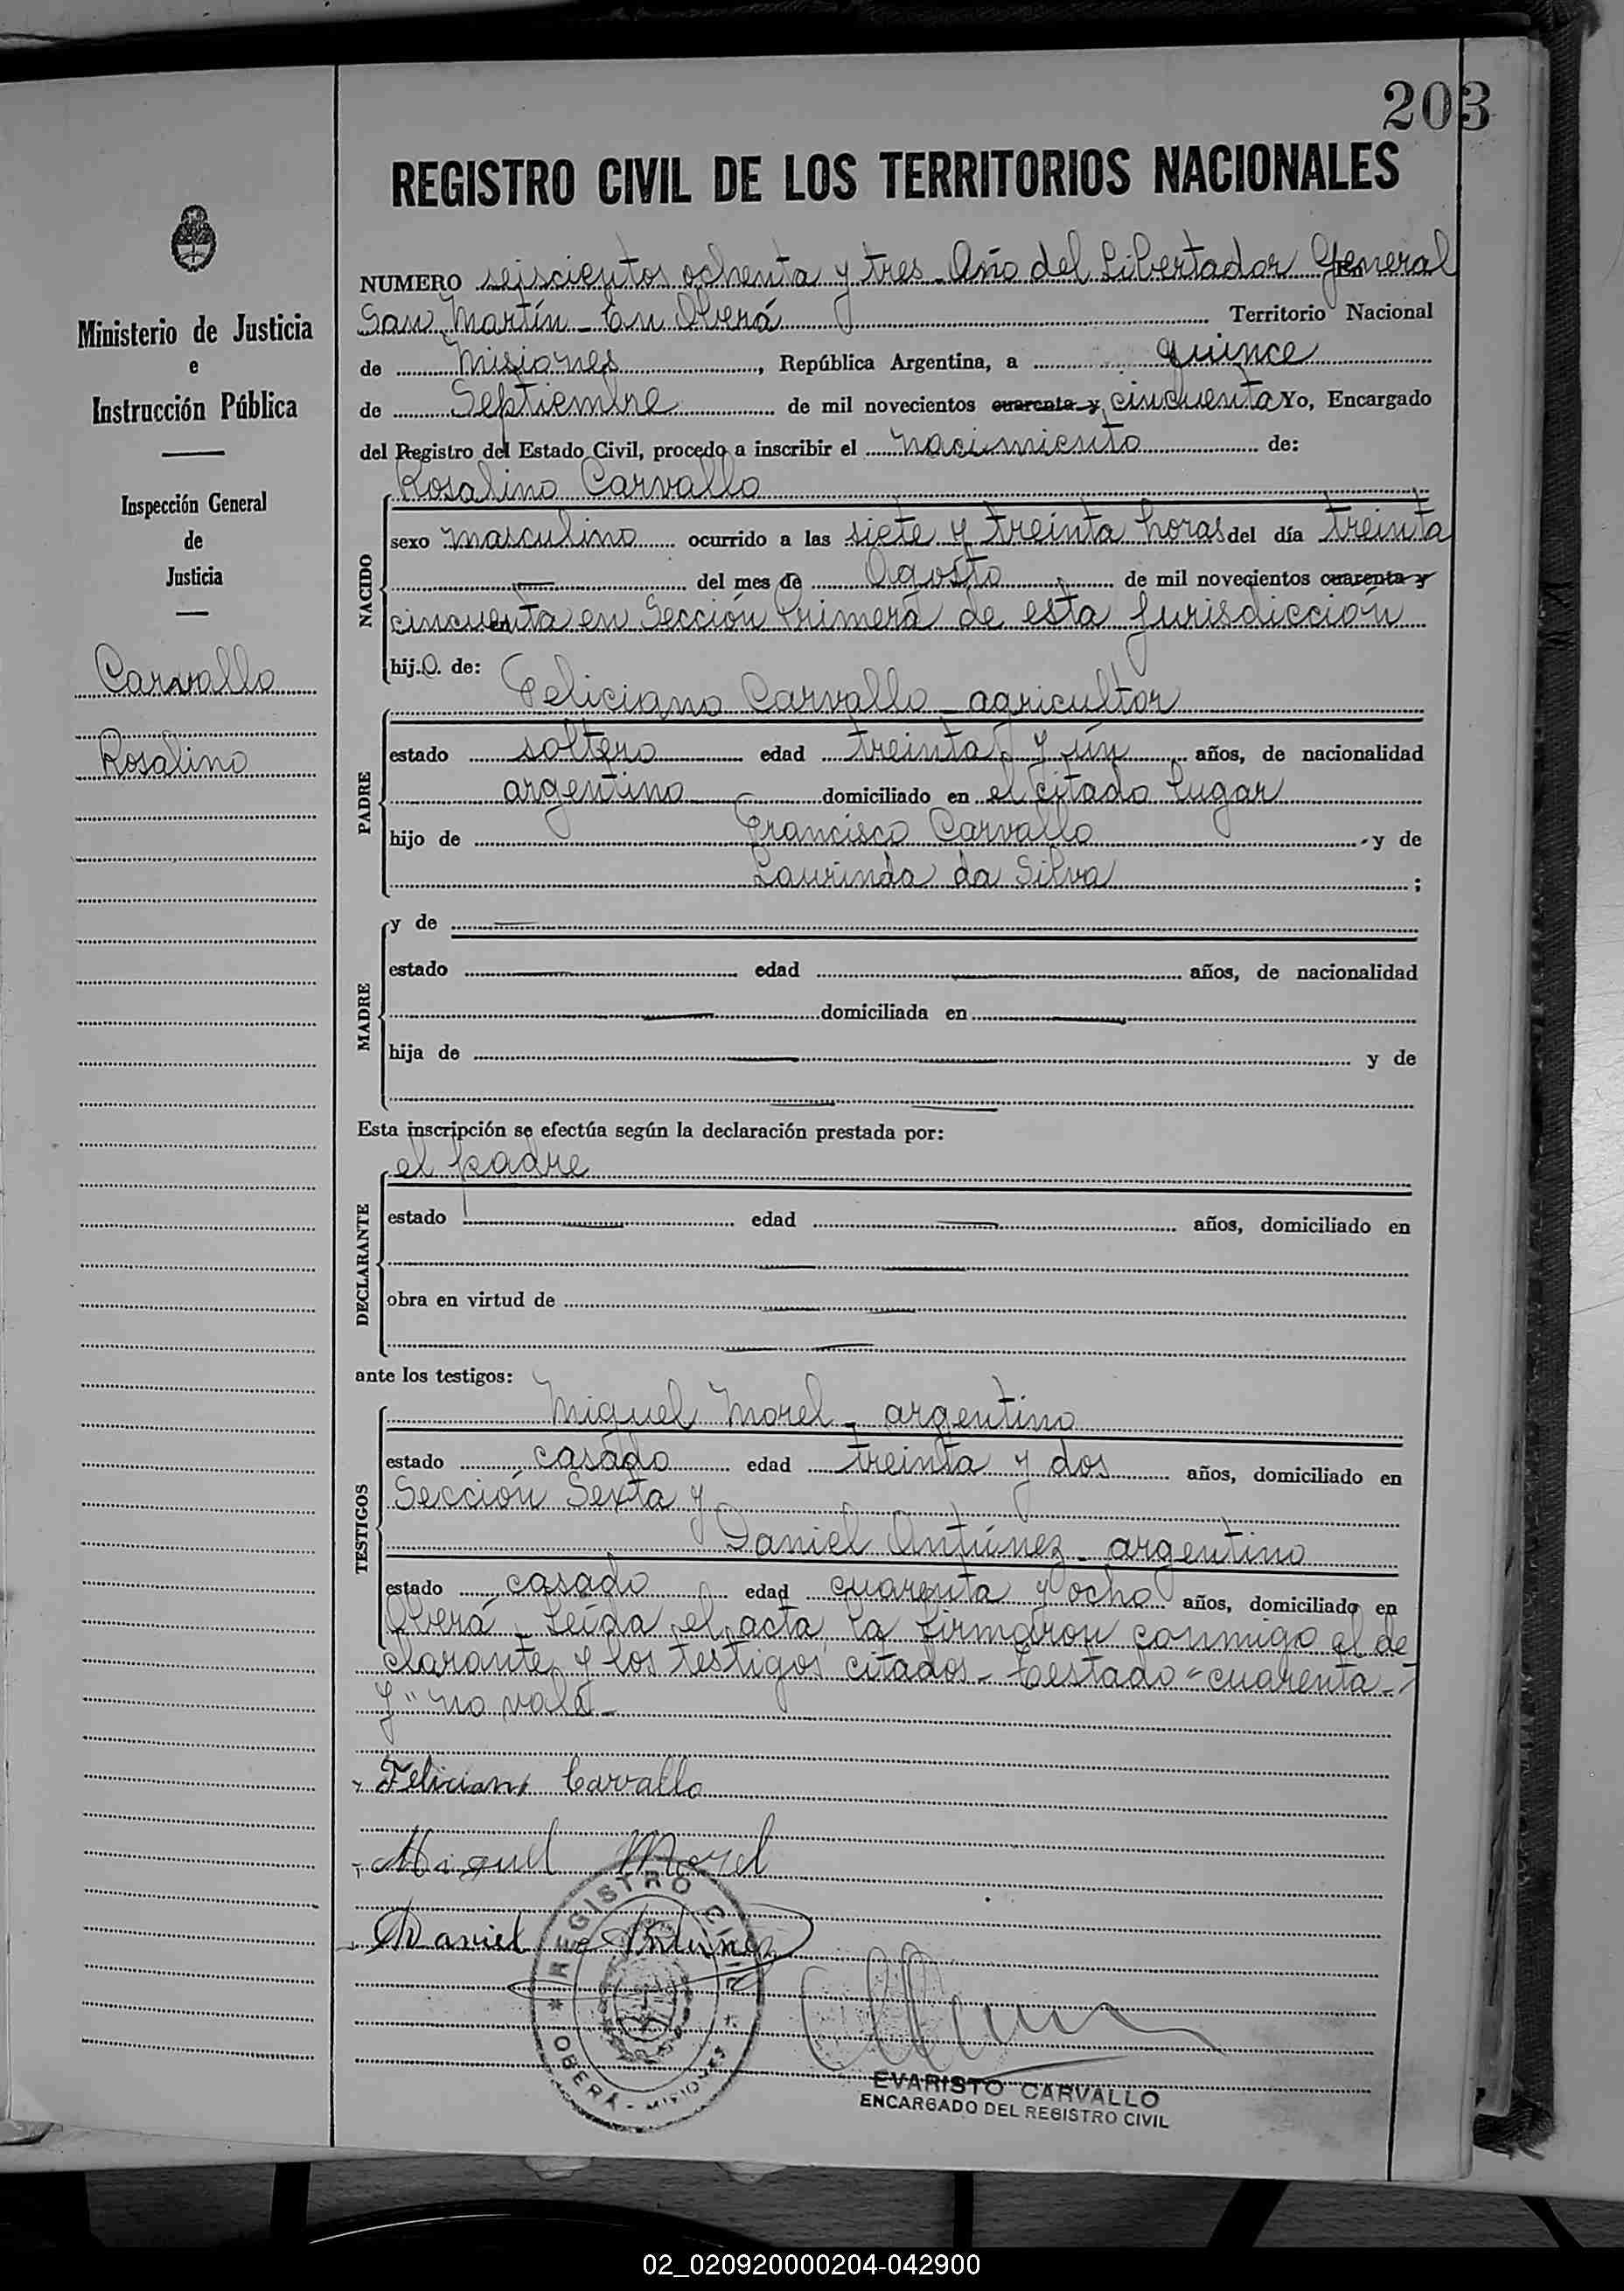 203
REGISTRO CIVIL DE LOS TERRITORIOS NACIONALES
Ministerio de Justicia
e
Instrucción Pública
Inspección General
de
Justicia
Carvallo
Rosalino
NUMERO seiscientos ochenta y tres - Año del Libertador General
San Martín - En Oberá Territorio Nacional
de Misiones, República Argentina, a quince
de Septiembre de mil novecientos cuarenta y cincuenta Yo, Encargado
del Registro del Estado Civil, procedo a inscribir el nacimiento de:
Rosalino Carvallo
NACIDO
sexo masculino ocurrido a las siete y treinta horas del día treinta
del mes de Agosto de mil novecientos cuarenta y
cincuenta en Sección Primera de esta Jurisdicción
hijo de:
Feliciano Carvallo - agricultor
PADRE
estado soltero edad treinta y ún años, de nacionalidad
argentino domiciliado en el citado lugar
hijo de Francisco Carvallo y de
Laurinda da Silva ;
MADRE
y de
estado edad años, de nacionalidad
domiciliada en
hija de y de
Esta inscripción se efectúa según la declaración prestada por:
el padre
DECLARANTE
estado edad años, domiciliado en
obra en virtud de
ante los testigos:
Miguel Morel - argentino
TESTIGOS
estado casado edad treinta y dos años, domiciliado en
Sección Sexta y
Daniel Antúnez - argentino
estado casado edad cuarenta y ocho años, domiciliado en
Oberá - Leída el acta, la firmaron conmigo el de
clarante y los testigos citados - Testado "cuarenta -
y" no vale -
Feliciano Carvallo
Miguel Morel
Daniel Antúnez
REGISTRO CIVIL
OBERÁ - MISIONES
EVARISTO CARVALLO
ENCARGADO DEL REGISTRO CIVIL
02_020920000204-042900